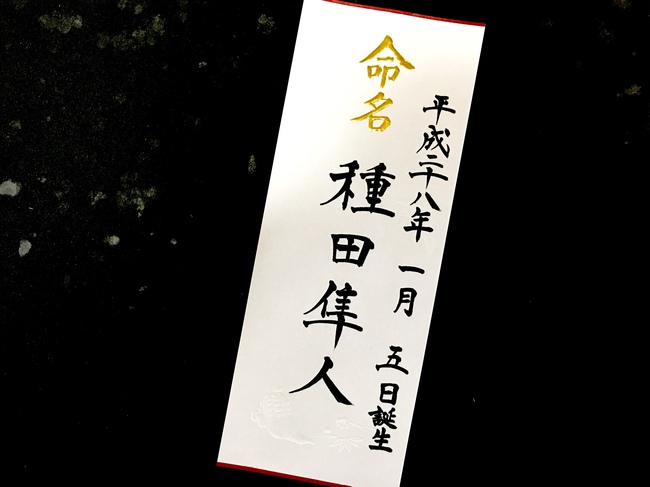 平成二十八年 一月 五日誕生
命名
種田隼人